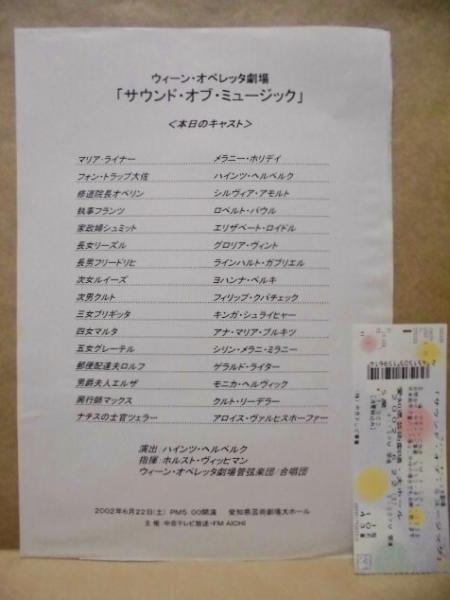 ウィーン・オペレッタ劇場
「サウンド・オブ・ミュージック」
＜本日のキャスト＞
マリア・ライナー メラニー・ホリデイ
フォン・トラップ大佐 ハインツ・ヘルベルク
修道院長オペリン シルヴィア・アモルト
執事フランツ ロベルト・パウル
家政婦シュミット エリザベート・ロイドル
長女リーズル グロリア・ヴィント
長男フリードリヒ ラインハルト・ガブリエル
次女ルイーズ ヨハンナ・ベルキ
次男クルト フィリップ・クパチェック
三女ブリギッタ キンガ・シュライヒャー
四女マルタ アナ・マリア・ブルキツ
五女グレーテル シリン・メラニ・ミラニー
郵便配達夫ロルフ ゲラルド・ライター
男爵夫人エルザ モニカ・ヘルヴィック
興行師マックス クルト・リーデラー
ナチスの士官ツェラー アロイス・ヴァルヒスホーファー
演出：ハインツ・ヘルベルク
指揮：ホルスト・ヴィッヒマン
ウィーン・オペレッタ劇場管弦楽団/合唱団
2002年6月22日(土) PM5:00開演 愛知県芸術劇場大ホール
主催 中京テレビ放送・FM AICHI